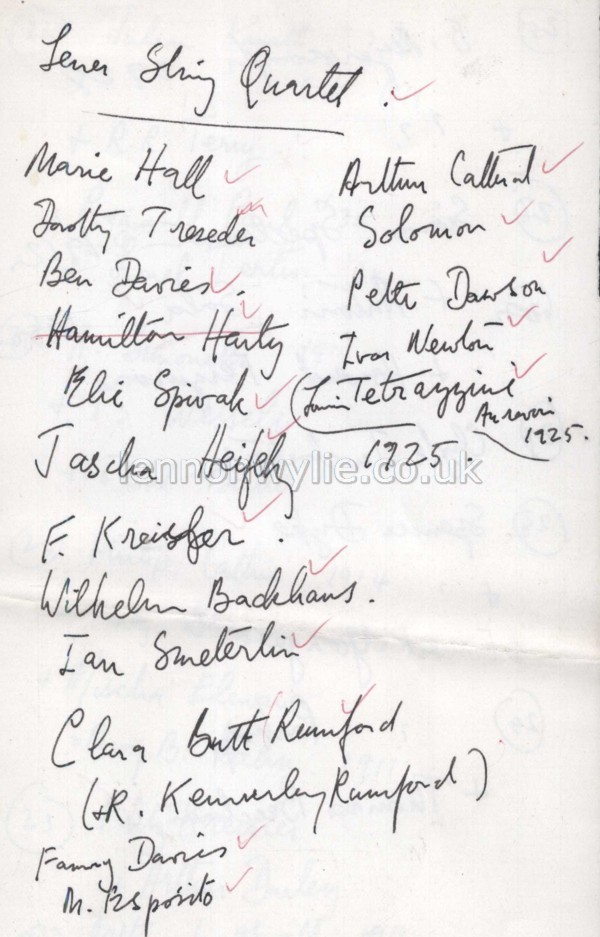 Lener String Quartet.
Marie Hall
Dorothy Treseder
Ben Davies.
Hamilton Harty
Elie Spivak
Jascha Heifetz
F. Kreisler
Wilhelm Backhaus.
Ian Smeterlin
Clara Butt Rumford
(+R. Kennerley Rumford)
Fanny Davies
M. Esposito
Arthur Catterall
Solomon
Peter Dawson
Ivor Newton
(Luisa Tetrazzini
1925.
Au revoir
1925.
lennonwylie.co.uk